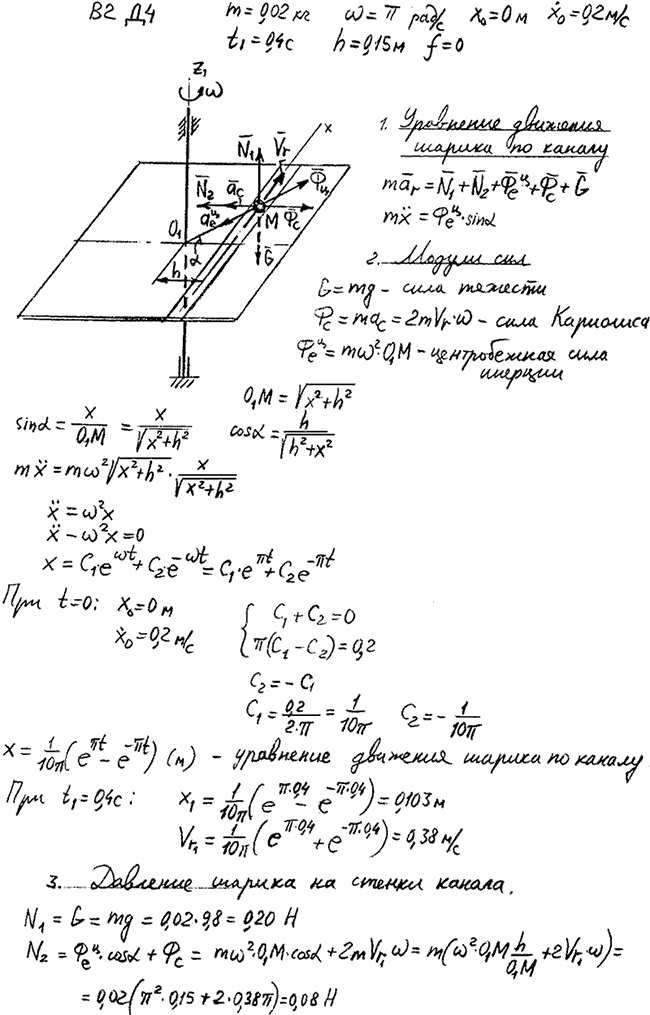 В2 Д4 m = 0,02 кг ω = π рад/с x₀ = 0 м ẋ₀ = 0,2 м/с
t₁ = 0,4 с h = 0,15 м f = 0
Z₁
ω
x
N̄₁ V̄r
N̄₂ āc Φ̄ц
āeц M Φ̄c
O₁
α Ḡ
h
1. Уравнение движения
шарика по каналу
mār = N̄₁ + N̄₂ + Φ̄eц + Φ̄c + Ḡ
mẍ = Φeц · sinα
2. Модули сил
G = mg – сила тяжести
Φc = mac = 2mVr·ω – сила Кариолиса
Φeц = mω²·O₁M – центробежная сила
инерции
O₁M = √(x² + h²)
sinα = x/O₁M = x/√(x² + h²) cosα = h/√(h² + x²)
mẍ = mω²√(x² + h²) · x/√(x² + h²)
ẍ = ω²x
ẍ – ω²x = 0
x = C₁·e^ωt + C₂·e^–ωt = C₁·e^πt + C₂e^–πt
При t = 0: x₀ = 0 м { C₁ + C₂ = 0
ẋ₀ = 0,2 м/с π(C₁ – C₂) = 0,2
C₂ = – C₁
C₁ = 0,2/2·π = 1/10π C₂ = – 1/10π
x = 1/10π (e^πt – e^–πt) (м) – уравнение движения шарика по каналу.
При t₁ = 0,4 с: x₁ = 1/10π (e^π·0,4 – e^–π·0,4) = 0,103 м
Vr₁ = 1/10π (e^π·0,4 + e^–π·0,4) = 0,38 м/с
3. Давление шарика на стенки канала.
N₁ = G = mg = 0,02·9,8 = 0,20 Н
N₂ = Φeц·cosα + Φc = mω²·O₁M·cosα + 2mVr₁ω = m(ω²·O₁M h/O₁M + 2Vr₁·ω) =
= 0,02(π²·0,15 + 2·0,38π) = 0,08 Н